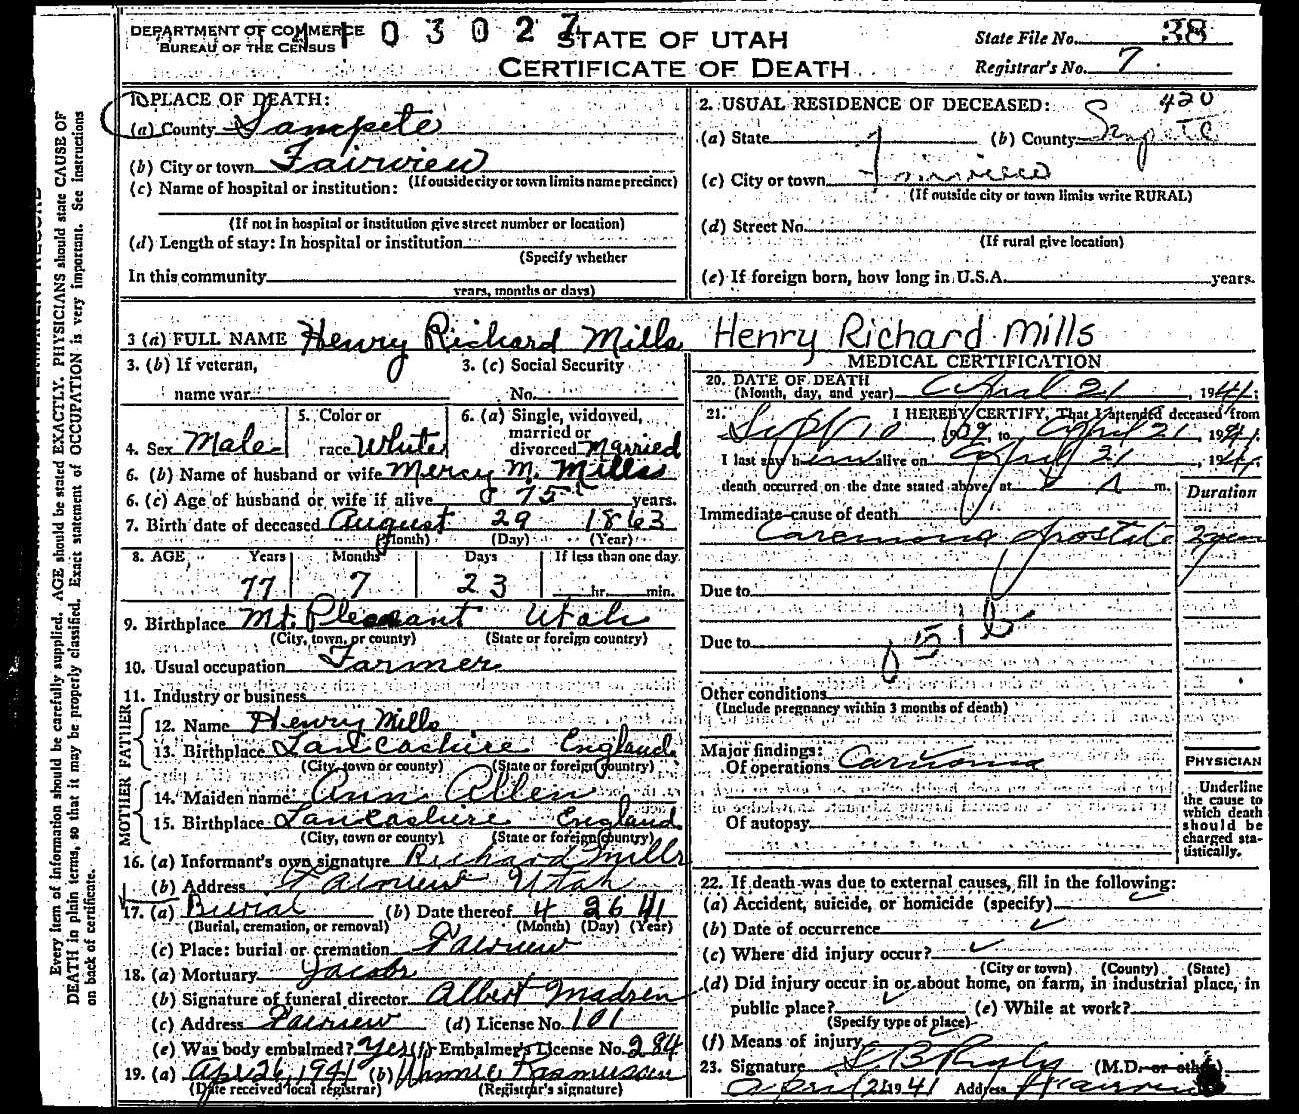 DEPARTMENT OF COMMERCE
BUREAU OF THE CENSUS
4 1 0 3 0 2 7
STATE OF UTAH
CERTIFICATE OF DEATH
State File No. 38
Registrar's No. 7
1. PLACE OF DEATH:
(a) County Sanpete
(b) City or town Fairview
(If outside city or town limits name precinct)
(c) Name of hospital or institution:
(If not in hospital or institution give street number or location)
(d) Length of stay: In hospital or institution
(Specify whether
In this community
years, months or days)
2. USUAL RESIDENCE OF DECEASED: 420
(a) State (b) County Sanpete
(c) City or town Fairview
(If outside city or town limits write RURAL)
(d) Street No.
(If rural give location)
(e) If foreign born, how long in U.S.A. years.
3 (a) FULL NAME Henry Richard Mills Henry Richard Mills
3. (b) If veteran,
name war
3. (c) Social Security
No.
4. Sex Male
5. Color or
race White
6. (a) Single, widowed,
married or
divorced Married
6. (b) Name of husband or wife Mercy M. Mills
6. (c) Age of husband or wife if alive 75 years.
7. Birth date of deceased August 29 1863
(Month) (Day) (Year)
8. AGE Years Months Days If less than one day
77 7 23 hr. min.
9. Birthplace Mt. Pleasant Utah
(City, town, or county) (State or foreign country)
10. Usual occupation Farmer
11. Industry or business
FATHER
12. Name Henry Mills
13. Birthplace Lancashire England
(City, town or county) (State or foreign country)
MOTHER
14. Maiden name Ann Allen
15. Birthplace Lancashire England
(City, town or county) (State or foreign country)
16. (a) Informant's own signature Richard Mills
(b) Address Fairview Utah
17. (a) Burial (b) Date thereof 4 26 41
(Burial, cremation, or removal) (Month) (Day) (Year)
(c) Place: burial or cremation Fairview
18. (a) Mortuary Jacobs
(b) Signature of funeral director Albert Madsen
(c) Address Fairview (d) License No. 101
(e) Was body embalmed? Yes (f) Embalmer's License No. 284
19. (a) Apr 26, 1941 (b) Rasmussen
(Date received local registrar) (Registrar's signature)
MEDICAL CERTIFICATION
20. DATE OF DEATH
(Month, day, and year) April 21, 1941;
21. I HEREBY CERTIFY, That I attended deceased from
Sept 10, 1939, to April 21, 1941.
I last saw him alive on April 21, 1941,
death occurred on the date stated above, at A m.
Duration
Immediate cause of death
Carcinoma prostate 2 years
Due to
Due to
051b
Other conditions
(Include pregnancy within 3 months of death)
Major findings:
Of operations Carcinoma
Of autopsy
PHYSICIAN
Underline
the cause to
which death
should be
charged sta-
tistically.
22. If death was due to external causes, fill in the following:
(a) Accident, suicide, or homicide (specify)
(b) Date of occurrence
(c) Where did injury occur?
(City or town) (County) (State)
(d) Did injury occur in or about home, on farm, in industrial place, in
public place? (e) While at work?
(Specify type of place)
(f) Means of injury
23. Signature (M.D. or other)
April 21 1941 Address Fairview
Every item of information should be carefully supplied. AGE should be stated EXACTLY. PHYSICIANS should state CAUSE OF
DEATH in plain terms, so that it may be properly classified. Exact statement of OCCUPATION is very important. See instructions
on back of certificate.